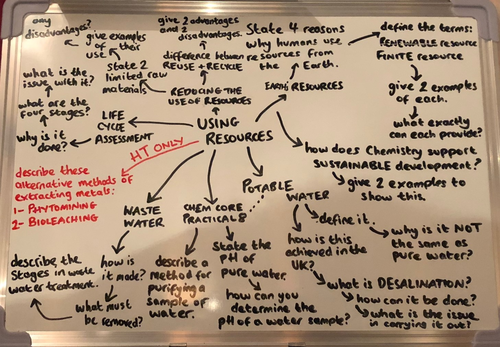 any
disadvantages?
give examples
of their
use
State 2
limited raw
materials
give 2 advantages
and 2
disadvantages.
difference between
REUSE + RECYCLE
REDUCING THE
USE OF RESOURCES
State 4 reasons
why humans use
resources from
the Earth.
EARTH RESOURCES
define the terms:
RENEWABLE resource
FINITE resource
give 2 examples
of each.
what exactly
can each provide?
what is the
issue with it?
what are the
four stages?
why is it
done?
LIFE
CYCLE
ASSESSMENT
USING
RESOURCES
how does Chemistry support
SUSTAINABLE development?
give 2 examples to
show this.
HT ONLY
describe these
alternative methods of
extracting metals:
1- PHYTOMINING
2- BIOLEACHING
POTABLE
WATER
define it.
why is it NOT
the same as
pure water?
how is this
achieved in the
UK?
what is DESALINATION?
how can it be done?
what is the issue
in carrying it out?
CHEM CORE
PRACTICAL 8
State the
pH of
pure water.
how can you
determine the
pH of a water sample?
describe a
method for
purifying a
sample of
water.
WASTE
WATER
how is
it made?
what must
be removed?
describe the
stages in waste
water treatment.